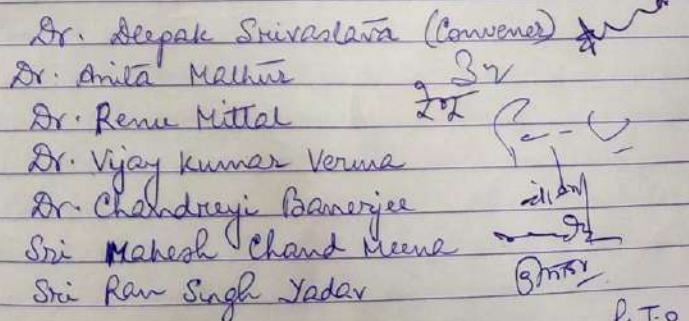 Dr. Deepak Srivastava (Convener)
Dr. Anita Mathur
Dr. Renu Mittal रेणु
Dr. Vijay Kumar Verma
Dr. Chandreyi Banerjee
Sri Mahesh Chand Meena
Sri Ram Singh Yadav
P.T.O